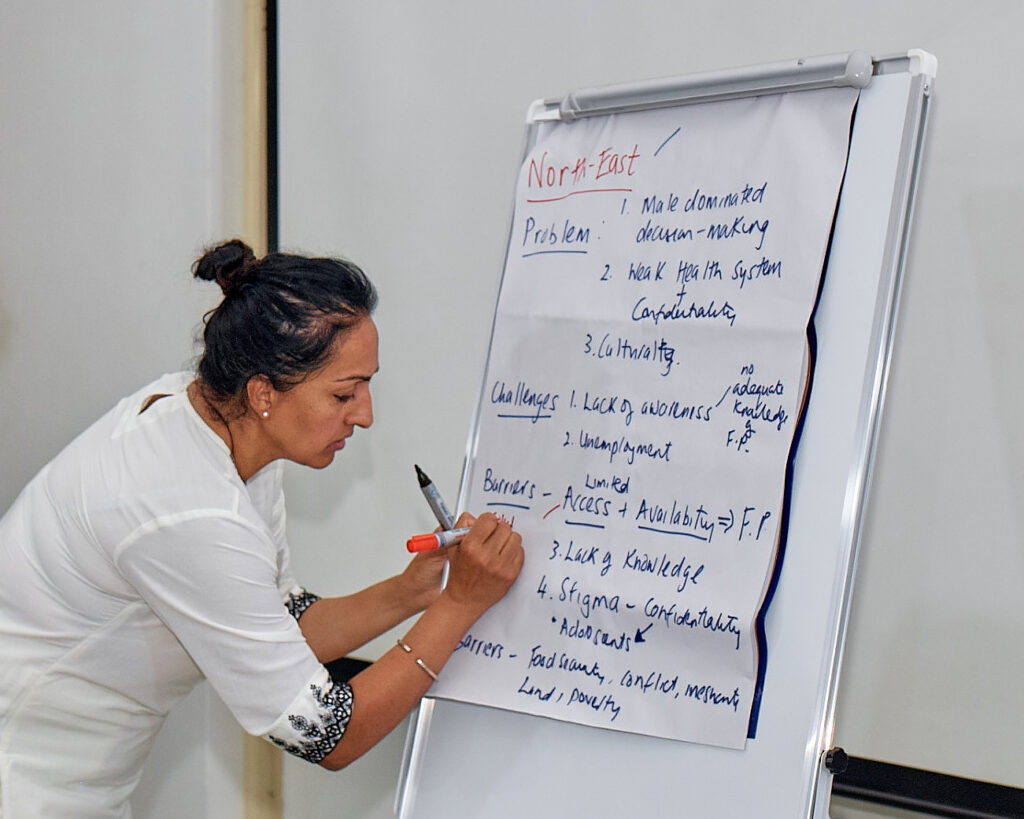 North-East
Problem: 1. Male dominated
decision-making
2. Weak Health System
+
Confidentiality
3. Culturally.
Challenges 1. Lack of awareness
no
adequate
knowledge
of
F.P.
2. Unemployment
Limited
Barriers - Access + Availability => F.P
3. Lack of Knowledge
4. Stigma - Confidentiality
• Adolescents
Barriers - Food security, conflict,
Land, poverty